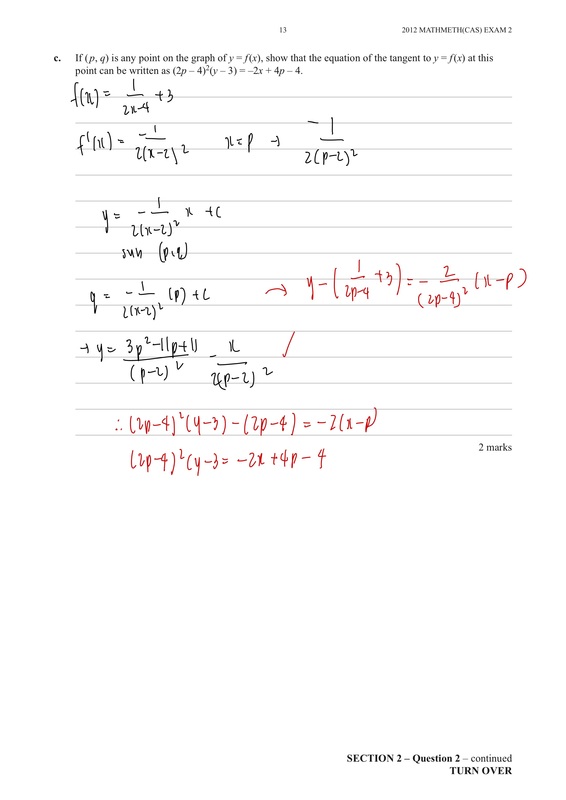 13
2012 MATHMETH(CAS) EXAM 2
c. If (p, q) is any point on the graph of y = f(x), show that the equation of the tangent to y = f(x) at this
point can be written as (2p – 4)²(y – 3) = –2x + 4p – 4.
f(x) = 1/(2x-4) + 3
f'(x) = -1/(2(x-2)²) x=p → -1/(2(p-2)²)
y = -1/(2(x-2)²) x + c
sub (p,q)
q = -1/(2(x-2)²) (p) + c → y - (1/(2p-4) + 3) = - 2/(2p-4)² (x-p)
→ y = (3p²-11p+11)/(p-2)² - x/(2(p-2)²) ✓
∴ (2p-4)²(y-3) - (2p-4) = -2(x-p)
(2p-4)²(y-3 = -2x + 4p - 4
2 marks
SECTION 2 – Question 2 – continued
TURN OVER